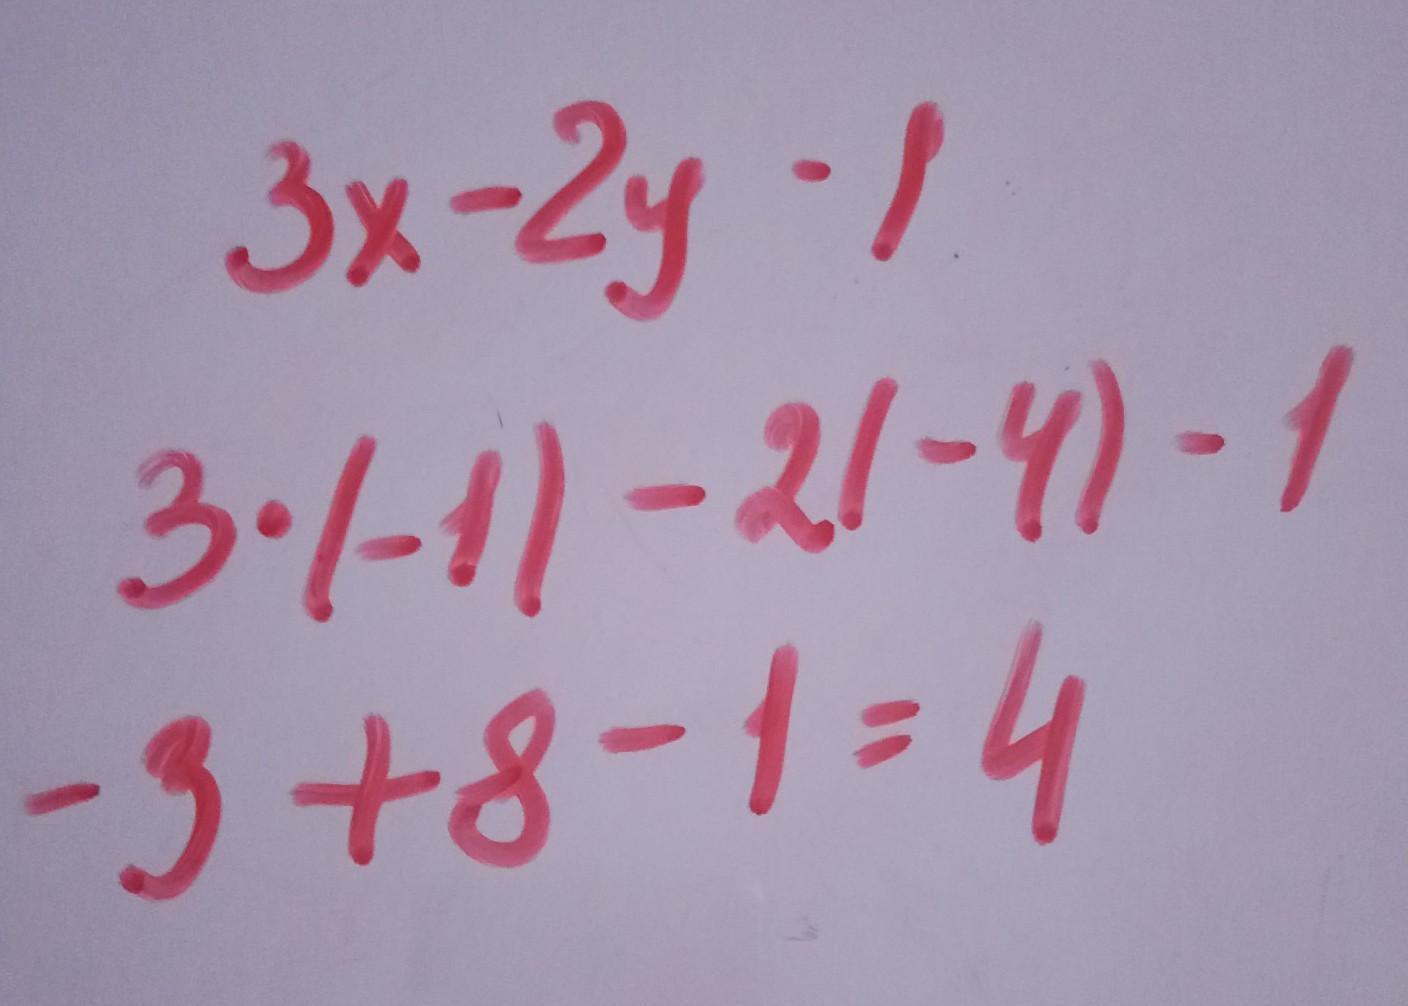 3x - 2y - 1
3·(-1) - 2(-4) - 1
-3 + 8 - 1 = 4